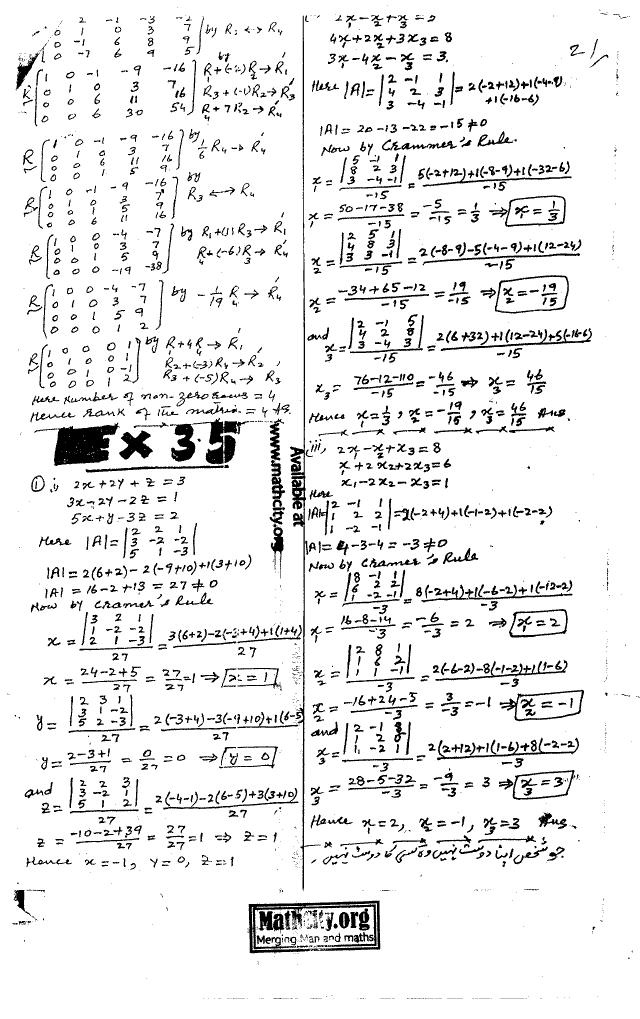 0 2 -1 -3 -2
0 1 0 3 7
0 -1 6 8 9
0 -7 6 9 5
by R₂ ↔ R₄
R 1 0 -1 -9 -16
0 1 0 3 7
0 0 6 11 16
0 0 6 30 54
by
R₁+(-2)R₂ → R₁′
R₃+(-1)R₂ → R₃′
R₄+7R₂ → R₄′
R 1 0 -1 -9 -16
0 1 0 3 7
0 0 6 11 16
0 0 1 5 9
by
1/6 R₄ → R₄′
R 1 0 -1 -9 -16
0 1 0 3 7
0 0 1 5 9
0 0 6 11 16
by
R₃ ↔ R₄
R 1 0 0 -4 -7
0 1 0 3 7
0 0 1 5 9
0 0 0 -19 -38
by R₁+(1)R₃ → R₁′
R₄+(-6)R₃ → R₄′
R 1 0 0 -4 -7
0 1 0 3 7
0 0 1 5 9
0 0 0 1 2
by -1/19 R₄ → R₄′
R 1 0 0 0 1
0 1 0 0 1
0 0 1 0 -1
0 0 0 1 2
by R₁+4R₄ → R₁′
R₂+(-3)R₄ → R₂′
R₃+(-5)R₄ → R₃′
Here number of non-zero rows = 4
Hence rank of the matrix = 4 Ans.
Ex 3.5
① i) 2x+2y+z=3
3x-2y-2z=1
5x+y-3z=2
Here |A| = |2 2 1|
|3 -2 -2|
|5 1 -3|
|A| = 2(6+2)-2(-9+10)+1(3+10)
|A| = 16-2+13 = 27 ≠ 0
Now by Cramer's Rule
x = |3 2 1|
|1 -2 -2|
|2 1 -3| / 27 = 3(6+2)-2(-3+4)+1(1+4) / 27
x = 24-2+5 / 27 = 27/27 = 1 ⇒ x=1
y = |2 3 1|
|3 1 -2|
|5 2 -3| / 27 = 2(-3+4)-3(-9+10)+1(6-5) / 27
y = 2-3+1 / 27 = 0/27 = 0 ⇒ y=0
and
z = |2 2 3|
|3 -2 1|
|5 1 2| / 27 = 2(-4-1)-2(6-5)+3(3+10) / 27
z = -10-2+39 / 27 = 27/27 = 1 ⇒ z=1
Hence x=-1, y=0, z=1
Available at
www.mathcity.org
21
2x₁-x₂+x₃=5
4x₁+2x₂+3x₃=8
3x₁-4x₂-x₃=3.
Here |A| = |2 -1 1|
|4 2 3|
|3 -4 -1| = 2(-2+12)+1(-4-9)
+1(-16-6)
|A| = 20-13-22=-15≠0
Now by Crammer's Rule.
x₁ = |5 -1 1|
|8 2 3|
|3 -4 -1| / -15 = 5(-2+12)+1(-8-9)+1(-32-6) / -15
x₁ = 50-17-38 / -15 = -5/-15 = 1/3 ⇒ x₁=1/3
x₂ = |2 5 1|
|4 8 3|
|3 3 -1| / -15 = 2(-8-9)-5(-4-9)+1(12-24) / -15
x₂ = -34+65-12 / -15 = 19/-15 ⇒ x₂=-19/15
and
x₃ = |2 -1 5|
|4 2 8|
|3 -4 3| / -15 = 2(6+32)+1(12-24)+5(-16-6) / -15
x₃ = 76-12-110 / -15 = -46/-15 ⇒ x₃ = 46/15
Hence x₁=1/3, x₂=-19/15, x₃=46/15 Ans.
iii, 2x₁-x₂+x₃=8
x₁+2x₂+2x₃=6
x₁-2x₂-x₃=1
Here
|A| = |2 -1 1|
|1 2 2|
|1 -2 -1| = 2(-2+4)+1(-1-2)+1(-2-2)
|A| = 4-3-4=-3≠0
Now by Cramer's Rule
x₁ = |8 -1 1|
|6 2 2|
|1 -2 -1| / -3 = 8(-2+4)+1(-6-2)+1(-12-2) / -3
x₁ = 16-8-14 / -3 = -6/-3 = 2 ⇒ x₁=2
x₂ = |2 8 1|
|1 6 2|
|1 1 -1| / -3 = 2(-6-2)-8(-1-2)+1(1-6) / -3
x₂ = -16+24-5 / -3 = 3/-3 = -1 ⇒ x₂=-1
and
x₃ = |2 -1 8|
|1 2 6|
|1 -2 1| / -3 = 2(2+12)+1(1-6)+8(-2-2) / -3
x₃ = 28-5-32 / -3 = -9/-3 = 3 ⇒ x₃=3
Hence x₁=2, x₂=-1, x₃=3 Ans.
جو شخص اپنا دوست نہیں وہ کسی کا دوست نہیں۔
MathCity.org
Merging Man and maths